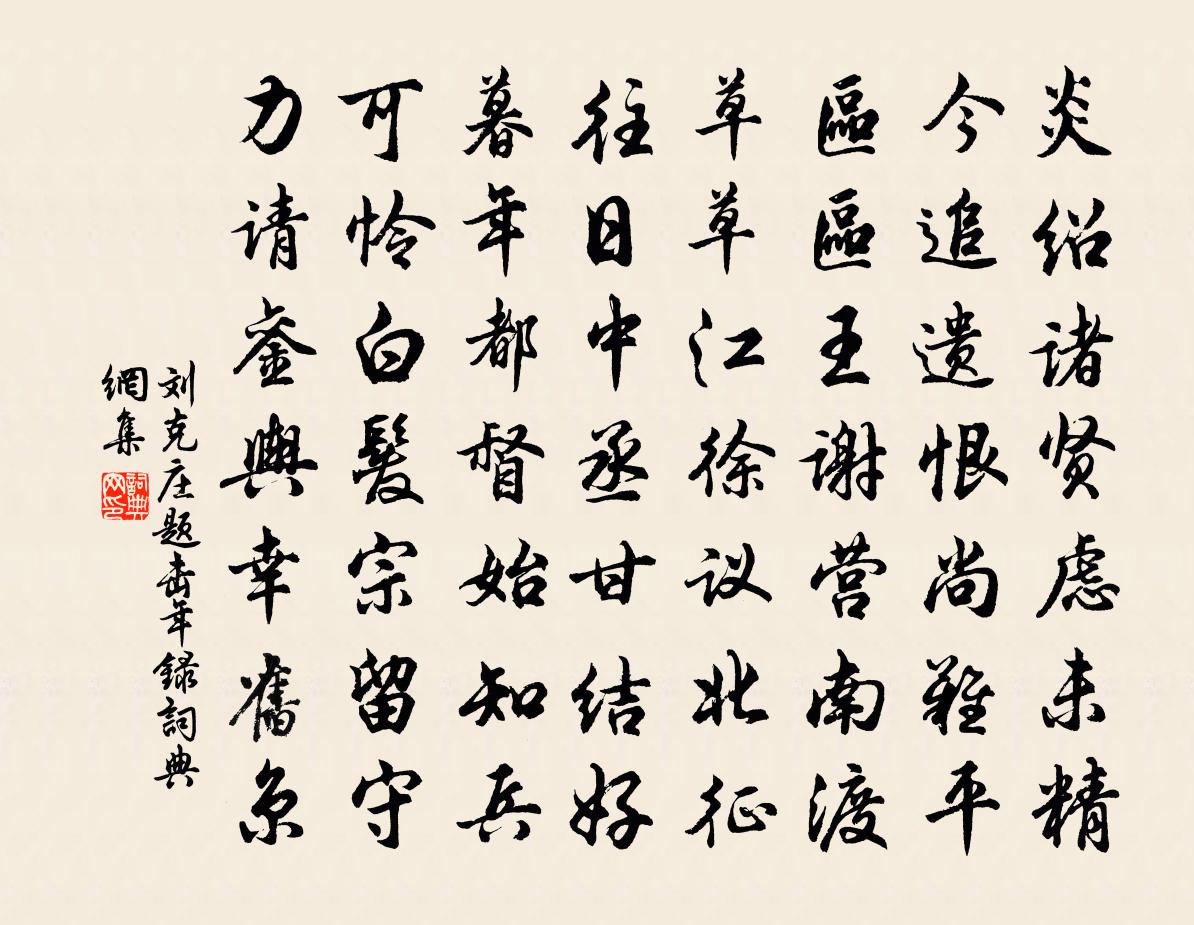 炎绍诸贤虑未精
今追遗恨尚難平
區區王谢营南渡
草草江徐议北征
往日中丞甘结好
暮年都督始知兵
可怜白髮宗留守
力请銮輿幸舊京
刘克庄题击年録詞典
網集
詞典网印